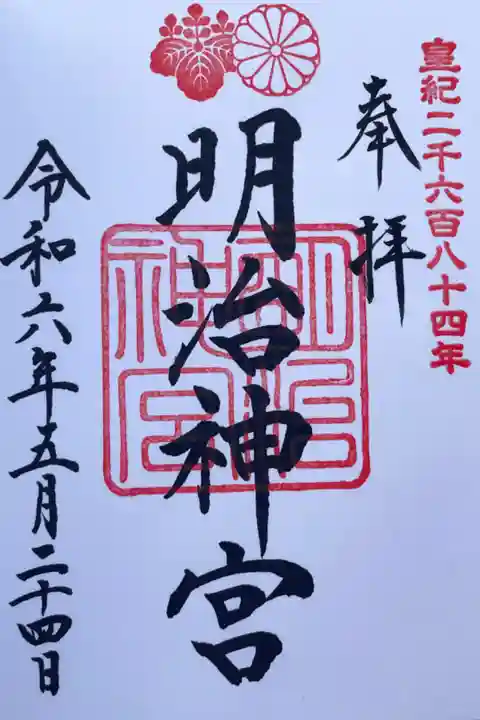 皇紀二千六百八十四年
奉拝
明治神宮
明治神宮
令和六年五月二十四日